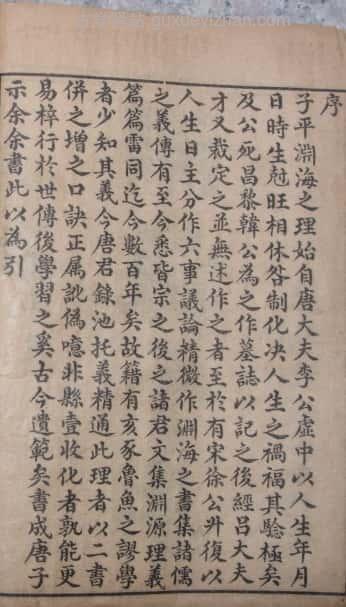 guxueyizhan.com
序
子平淵海之理始自唐大夫李公虛中以人生年月
日時生尅旺相休咎制化决人生之禍福其騐極矣
及公死昌黎韓公為之作墓誌以記之後經吕大夫
才又裁定之並無述作之者至於有宋徐公升復以
人生日主分作六事議論精微作淵海之書集諸儒
之義傳有至今悉皆宗之後之諸君文集淵源理義
篇篇雷同迄今數百年矣故籍有亥豕魯魚之謬學
者少知其義今唐君錄池托義精通此理者以二書
併之增之口訣正属訛偽噫非縣壹收化者孰能更
易梓行於世傳後學習之奚古今遺範矣書成唐子
示余余書此以為引